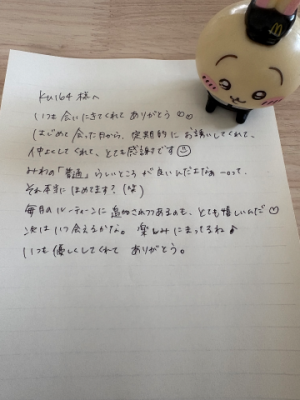 Ku164 様へ
いつも会いにきてくれてありがとう♡♡
はじめて会った日から、定期的にお誘いしてくれて、
仲よくしてくれて、とても感謝です☺
みわの「普通」らしいところが良いんだよなぁーって、
それ本当にほめてます？(笑)
毎日のルーティーンに追加されつつあるのも、とても嬉しいんだ♡
次はいつ会えるかな。楽しみにまってるね♪
いつも優しくしてくれてありがとう。